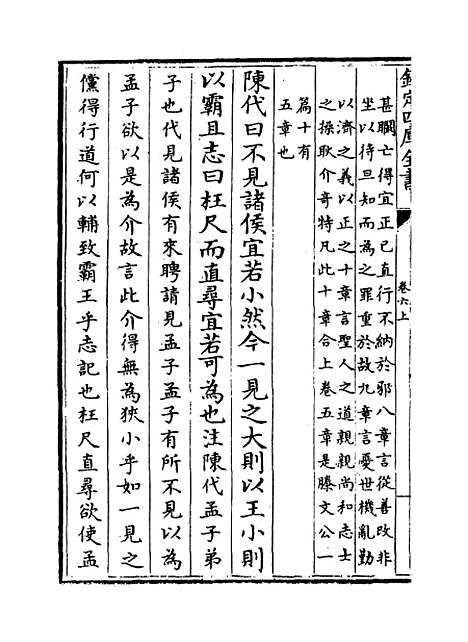 欽定四庫全書
卷六上
甚瞷亡得宜正己直行不納於邪八章言從善改非
坐以待旦知而為之罪重於故九章言憂世機亂勤
以濟之義以正之十章言聖人之道親親尚和志士
之操耿介竒特凡此十章合上卷五章是滕文公一
篇十有
五章也
陳代曰不見諸侯宜若小然今一見之大則以王小則
以霸且志曰枉尺而直尋宜若可為也注陳代孟子弟
子也代見諸侯有來聘請見孟子孟子有所不見以為
孟子欲以是為介故言此介得無為狹小乎如一見之
儻得行道何以輔致霸王乎志記也枉尺直尋欲使孟